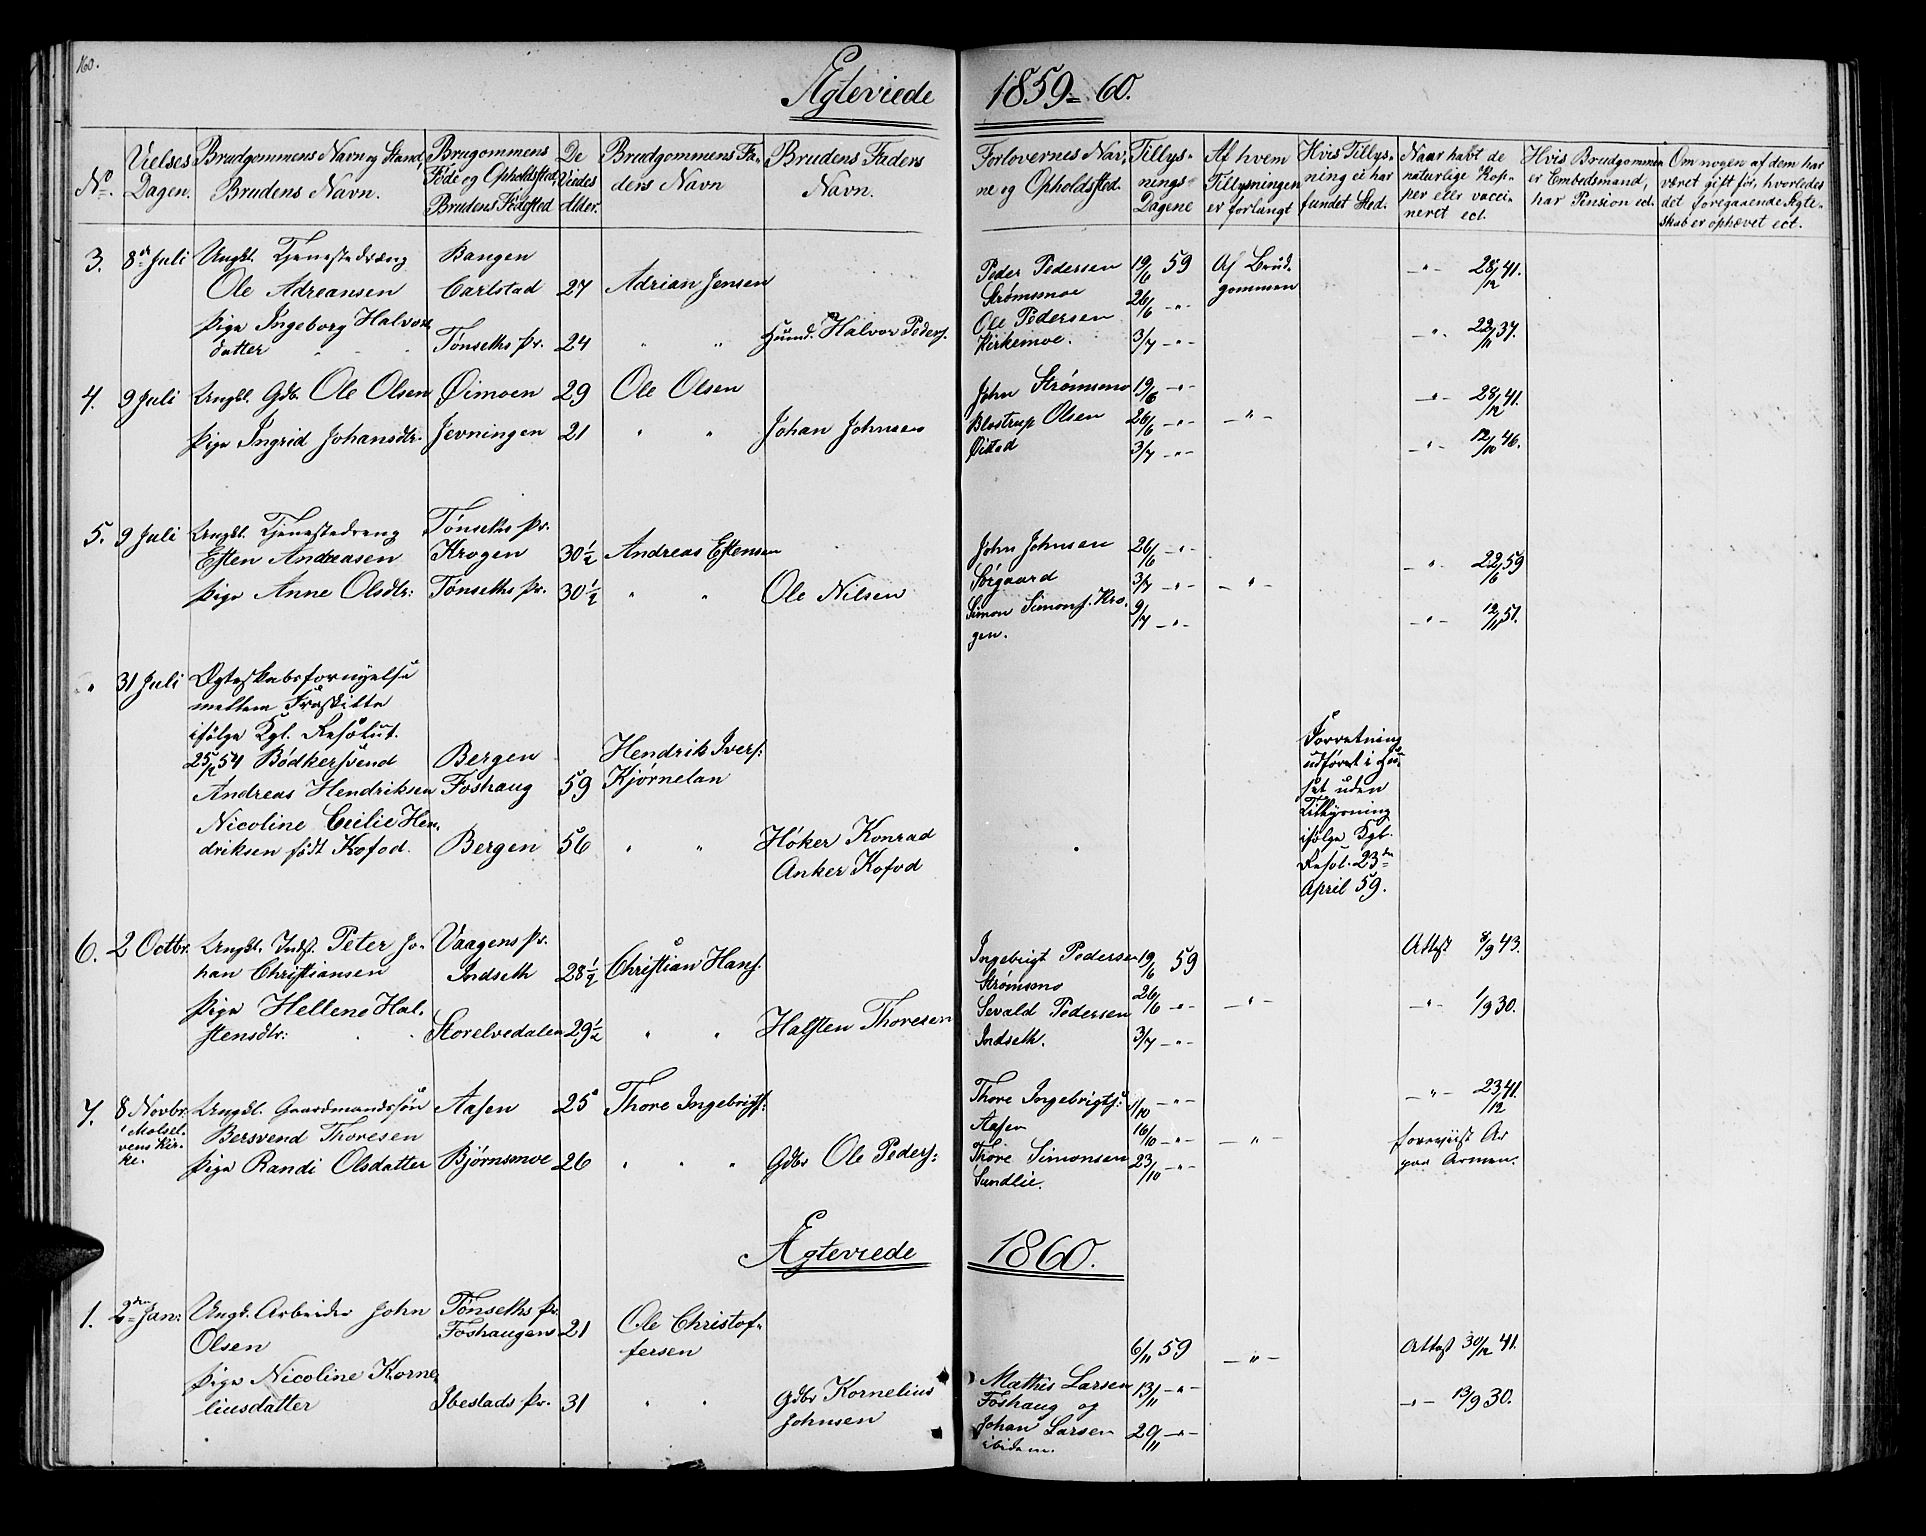 160.
Ægteviede 1859-60.
No. Vielses Dagen. Brudgommens Navn og Stand, Brudens Navn. Brugommens Føde og Opholdsted, Brudens Fødested De Viedes Alder. Brudgommens Faders Navn Brudens Faders Navn. Forlovernes Navne og Opholdsted. Tillysnings Dagene Af hvem Tillysningen er forlangt Hvis Tillysning ei har fundet Sted. Naar havt de naturlige Kopper eller vaccineret ect. Hvis Brudgommen er Embedsmand, har Pension ect. Om nogen af dem har været gift før, hvorledes det foregaaende Ægteskab er ophævet ect.
3. 8de Juli Ungkl. Tjenestedræng Bangen
Ole Adreansen Carlstad 27 Adrian Jensen Peder Pedersen 19/6 59 Af Brudgommen -"- 28/12 41.
Strømsmoe 26/6 -"-
Pige Ingeborg Halvorsdatter Tønseths Pr. 24 " " Huusm. Halvor Peders. Ole Pedersen Kirkemoe. 3/7 -"- -"- 22/11 37.
4. 9 Juli Ungkl. Gdb. Ole Olsen Øimoen 29 Ole Olsen John Strømsmo 19/6 -"- -"- 28/12 41.
Pige Ingrid Johansdtr. Jevningen 21 " " Johan Johnsen Blostrup Olsen 26/6 -"- -"- -"- 12/10 46.
Øistad 3/7 -"-
5. 9 Juli Ungkl. Tjenestedreng Tønseths Pr.
Esten Andreasen Krogen 30½ Andreas Estensen John Johnsen 26/6 -"- -"- 22/6 59
Pige Anne Olsdtr: Tønseths Pr. 30½ " " Ole Nilsen Sørgaard 3/7 -"- -"-
Simon Simons. Krogen. 9/7 -"- -"- 12/11 51.
" 31 Juli Ægteskabsfornyelse
mellem Fraskilte
ifølge Kgl. Resolut.
25/2 54 Bødkersvend Bergen Hendrik Ivers:
Andreas Hendriksen Foshaug 59 Kjørnelan
Nicoline Cecilie Hendriksen født Kofod. Bergen 56 " " Høker Konrad
Anker Kofod
Forretning
udføret i Huset uden
Tillysning
ifølge Kgl.
Resol. 23de
April 59.
6. 2 Octbr. Ungkl. Indst. Peter Johan Christiansen Vaagens Pr. Indseth 28½ Christian Hans. Ingebrigt Pedersen Strømsmo 19/6 59 Attest 8/9 43.
Pige Hellene Halstensdtr: Storelvedalen 29½ " " Halsten Thoresen Sevald Pedersen Indseth. 26/6 -"- -"- -"- 1/9 30.
3/7 -"-
7. 8 Novbr. i Molselvens Kirke. Ungkl. Gaardmandssøn Aasen 25 Thore Ingebrigts: Thore Ingebrigts: Aasen 1/10 -"- -"- 23/12 41.
Bersvend Thoresen 16/10 -"- -"-
Pige Randi Olsdatter Bjørnsmoe 26 " " " Gdbr Ole Peders: Thore Simonsen Sundlie. 23/10 -"- foreviist Ar paa Armen.
Ægteviede 1860.
1. 2den Jan: Ungk. Arbeider John Olsen Tønseths Pr. Foshaugens 21 Ole Christoffersen 6/11 59 -"- Attest 30/12 41.
Pige Nicoline Korneliusdatter Ibestads Pr. 31 " " Gdbr Kornelius Johnsen Mathis Larsen Foshaug og 13/11 -"- -"- 13/9 30.
Johan Larsen ibidem. 20/11 -"-